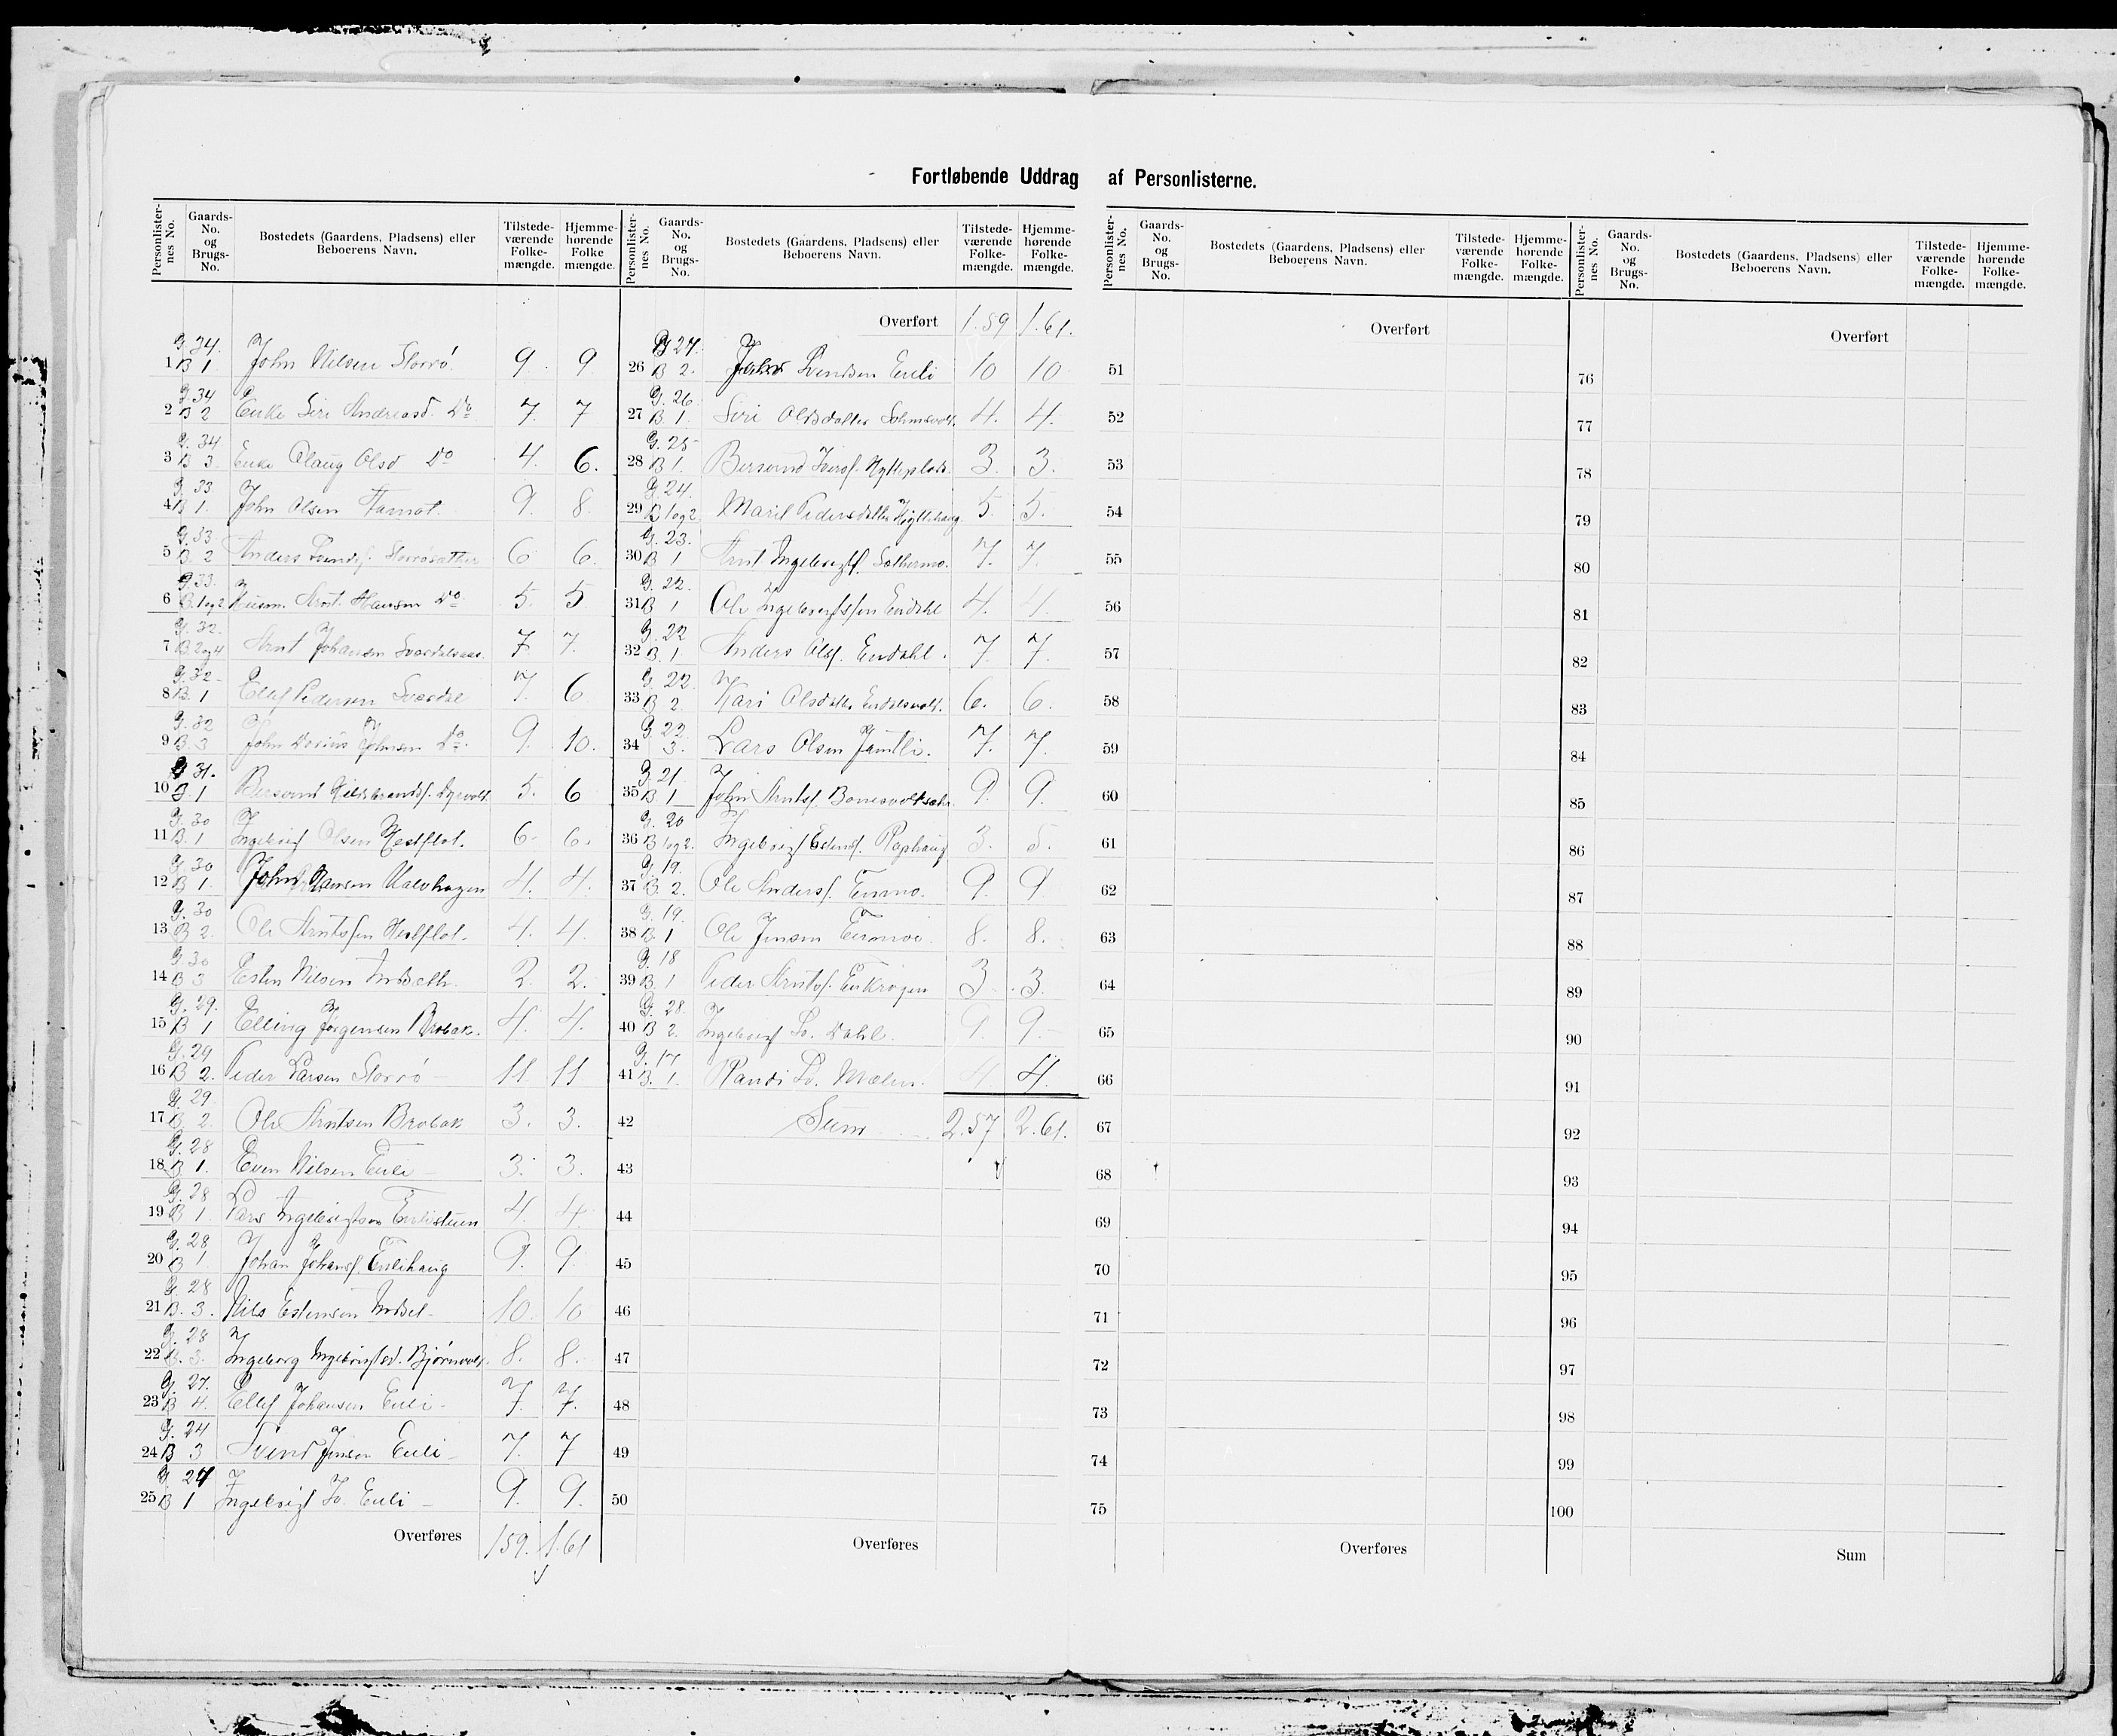 Fortløbende Uddrag af Personlisterne.
Personlisternes No. Gaards-No. og Brugs-No. Bostedets (Gaardens, Pladsens) eller Beboerens Navn. Tilstedeværende Folkemængde. Hjemmehørende Folkemængde.
1 G. 34. B 1 John Nilsen Storrø. 9. 9
2 G. 34 B 2 Enke Siri Andreasd. Do 7. 7
3 G. 34 B 3. Enke Olaug Olsd Do 4. 6.
4 G. 33. B 1. John Olsen 9. 8.
5 G. 33. B. 2 Anders 6 6.
6 G. 33. B. 1og2 Husm. Arnt. Hansen Do 5. 5
7 G. 32. B. 2og4 Arnt Johansen 7. 7.
8 G. 32 B. 1 Ellef Pedersen Sværdal 7. 6
9 G. 32 B. 3 John Dorius Johnsen Do. 9. 10.
10 G 31. B. 1 Bersvend 5. 6
11 G. 30 B. 1 Ingebrigt Olsen Hestflot. 6. 6.
12 G. 30 B 1. John Hansen 4. 4.
13 G. 30 B 2. Ole Arntsen Hestflot. 4. 4.
14 G. 30 B 3 Esten Nilsen Indseth. 2. 2.
15 G. 29. B 1 Elling Jørgensen Brobak. 4. 4.
16 G. 29 B 2. Peder Larsen Storrø 11 11
17 G. 29 B. 2. Ole Arntsen Brobak 3. 3.
18 G. 28 B 1. Even Nilsen Enli 3. 3.
19 G. 28 B 1. Lars Ingebrigtsen Enlistuen 4. 4.
20 G. 28 B 1 Johan Johansf. Enlihaug 9. 9.
21 G. 28 B. 3. Nils Estensen Indset 10. 10
22 G. 28 B. 3. Ingeborg Ingebrigtsd. Bjørnvold. 8. 8.
23 G. 27. B 4. Ellef Johansen Enli 7. 7.
24 G. 24 B 3 Svend Jensen Enli 7. 7
25 G 27 B 1 Ingebrigt Jo. Enli 9. 9.
Overføres 159. 1.61
Personlisternes No. Gaards-No. og Brugs-No. Bostedets (Gaardens, Pladsens) eller Beboerens Navn. Tilstedeværende Folkemængde. Hjemmehørende Folkemængde.
Overført 1.59 1.61.
26 G 27. B 2. John Svendsen Enli 10 10
27 G. 26. B 1. Siri Olsdatter 4. 4.
28 G. 25 B 1. Bersvend 3. 3.
29 G. 24. B 1og2 Marit Pedersdatter 5. 5.
30 G. 23. B 1 Arnt Ingebrigtsf. Sæthermo. 7. 7.
31 G. 22. B 1 Ole Ingebrigtssen Endahl 4. 4.
32 G. 22 B. 1 Anders Olsf. Endahl. 7. 7.
33 G. 22 B 2. Kari Olsdatter Endalsvold. 6. 6.
34 G. 22. 3. Lars Olsen Jamtli. 7. 7.
35 G. 21 B 1 John Arntsf. 9. 9.
36 G. 20 B 1og2. Ingebrigt Estensf. Raphaug 3. 5.
37 G. 19. B. 2. Ole Andersf. Enmo. 9. 9
38 G. 19. B. 1 Ole Jensen Enmoe. 8. 8.
39 G. 18 B. 1 Peder Arntsf. Enkrogen 3. 3.
40 G. 28. B 2. Ingebrigt Jo. Dahl. 9. 9.
41 G. 17 B. 1. Randi Jo. Mælen. 4. 4.
42 Sum 2.57 2.61.
43
44
45
46
47
48
49
50
Overføres
Personlisternes No. Gaards-No. og Brugs-No. Bostedets (Gaardens, Pladsens) eller Beboerens Navn. Tilstedeværende Folkemængde. Hjemmehørende Folkemængde.
Overført
51
52
53
54
55
56
57
58
59
60
61
62
63
64
65
66
67
68
69
70
71
72
73
74
75
Overføres
Personlisternes No. Gaards-No. og Brugs-No. Bostedets (Gaardens, Pladsens) eller Beboerens Navn. Tilstedeværende Folkemængde. Hjemmehørende Folkemængde.
Overført
76
77
78
79
80
81
82
83
84
85
86
87
88
89
90
91
92
93
94
95
96
97
98
99
100
Sum